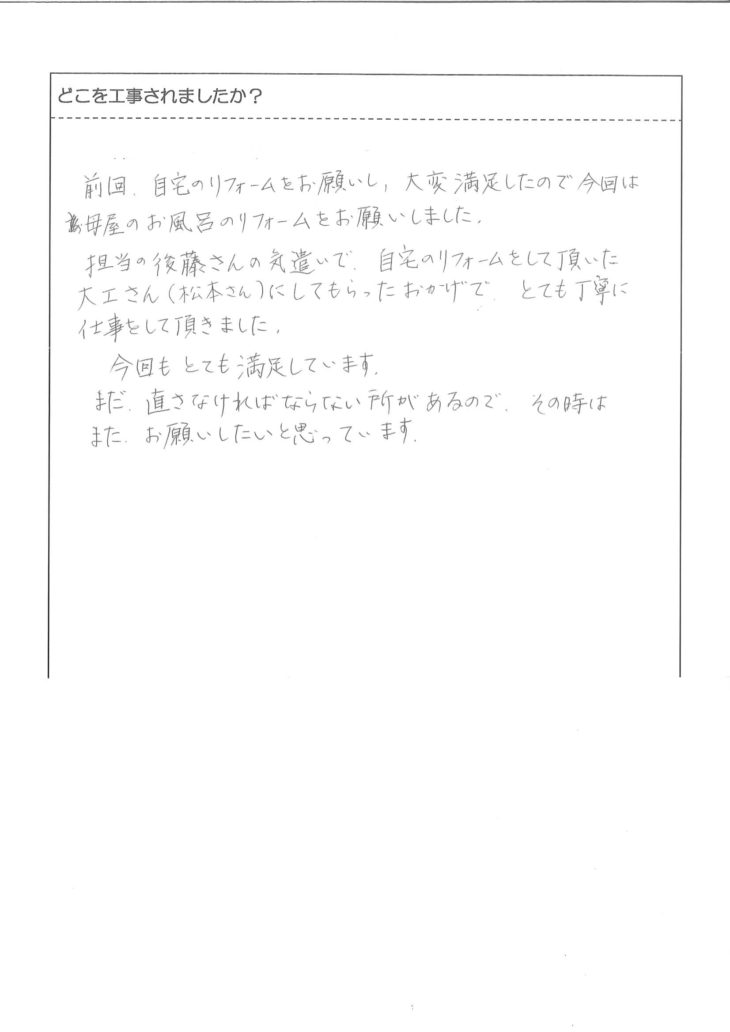 どこを工事されましたか？
前回、自宅のリフォームをお願いし、大変満足したので今回は
母屋のお風呂のリフォームをお願いしました。
担当の後藤さんの気遣いで、自宅のリフォームをして頂いた
大工さん(松本さん)にしてもらったおかげで、とても丁寧に
仕事をして頂きました。
今回もとても満足しています。
まだ、直さなければならない所があるので、その時は
また、お願いしたいと思っています。